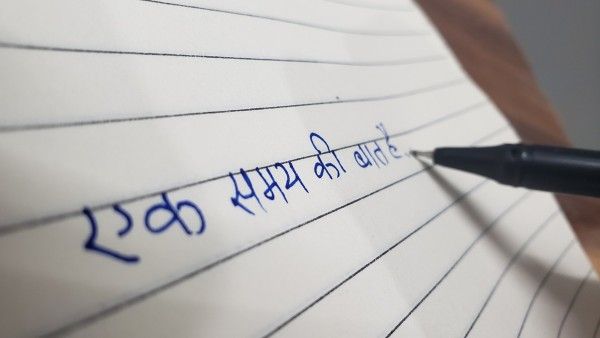 एक समय की बात है